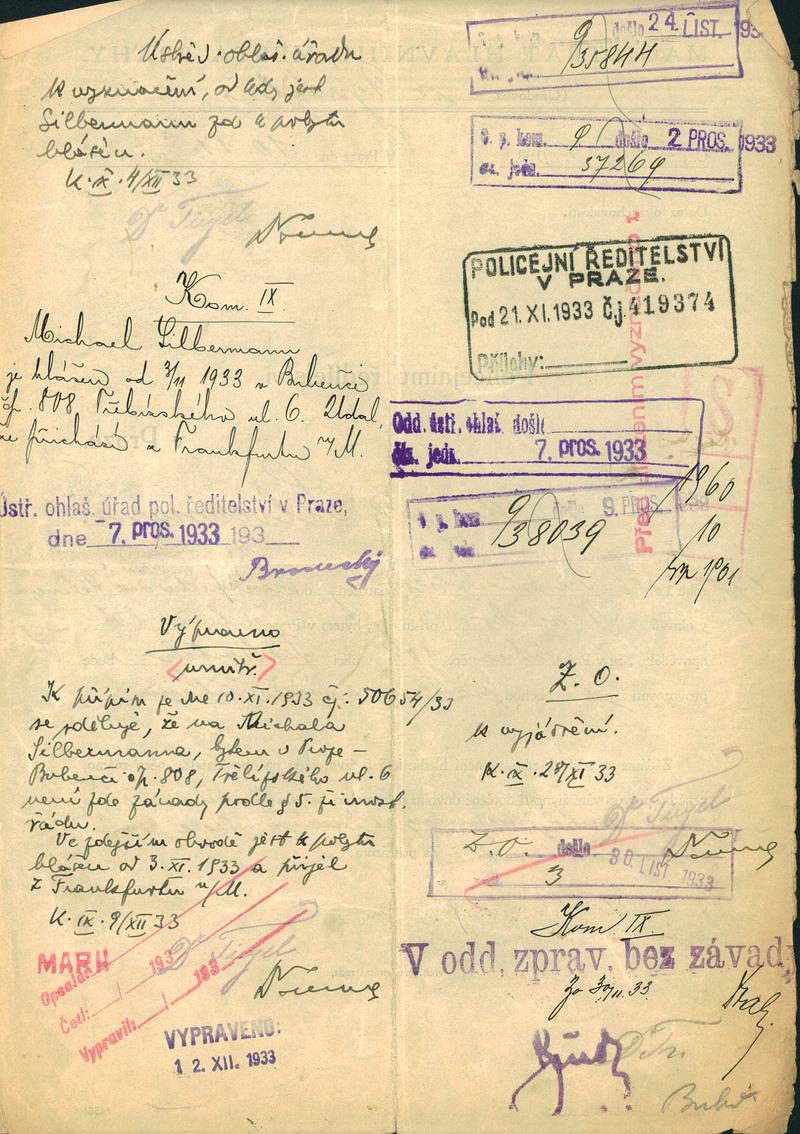 Ústřed. ohlaš. úřadu
k vyznačení, od kdy jest
Silbermann zde k pobytu
hlášen.
K. IX. 4/XII 33
Dr Figel
Kom. IX.
Michael Silbermann
je hlášen od 3/11 1933 v Bubenči
čp. 808 Třebízského ul. 6.
přichází z Frankfurtu n/M.
Ústř. ohlaš. úřad pol. ředitelství v Praze,
dne 7. PROS. 1933 193
Vypraveno
umístř.
K přípisu ze dne 10. XI. 1933 čj. 50654/33
se sděluje, že na Michala
Silbermanna, bytem v Praze -
Bubenči čp. 808, ul. 6
není zde závady podle § 5. živnost.
řádu.
Ve zdejším obvodě jest k pobytu
hlášen od 3. XI. 1933 a přijel
z Frankfurtu n/M.
K. IX. 9/XII 33
Dr Figel
MARH
Opsal: 193
Četl: 193
Vypravil:
VYPRAVENO:
1 2. XII. 1933
došlo 24. LIST. 193
9/35844
kom. 9 došlo 2 PROS. 1933
čís. jedn. 37269
POLICEJNÍ ŘEDITELSTVÍ
V PRAZE.
Pod 21. XI. 1933 Čj. 419374
Přílohy:
Před
Odd. ústř. ohlaš. došlo
čís. jedn. 7. PROS. 1933
kom. došlo 9. PROS. 1933
9/38039
1960
10
1901
Z. O.
k vyjádření.
K. IX. 28/XI 33
Dr Figel
Z. O. došlo 30. LIST. 1933
3
Kom. IX.
V odd. zprav. bez závady
30/11. 33